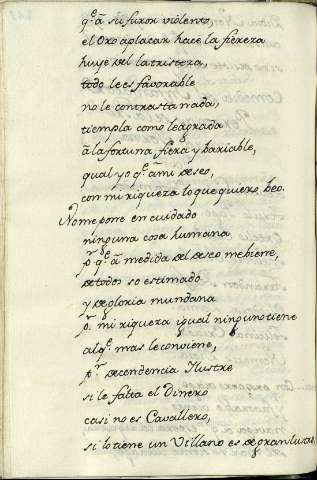 q.e â su furor violento,
el Oro aplacar hace la fiereza
huye del la tristeza,
todo le es favorable
no le contrasta nada,
tiempla como le agrada
â la fortuna fiera y bariable,
qual yo q.e â mi deseo,
con mi riqueza lo que quiero, beo.
No me pone en cuidado
ninguna cosa humana
p.r q.e â medida del deseo me biene,
de todos so estimado
y de gloria mundana
p.r mi riqueza igual ninguno tiene
al q.e mas le conviene,
p.r decendencia Ilustre
si le falta el Dinero
casi no es Cavallero,
si lo tiene un Villano es de gran lustre